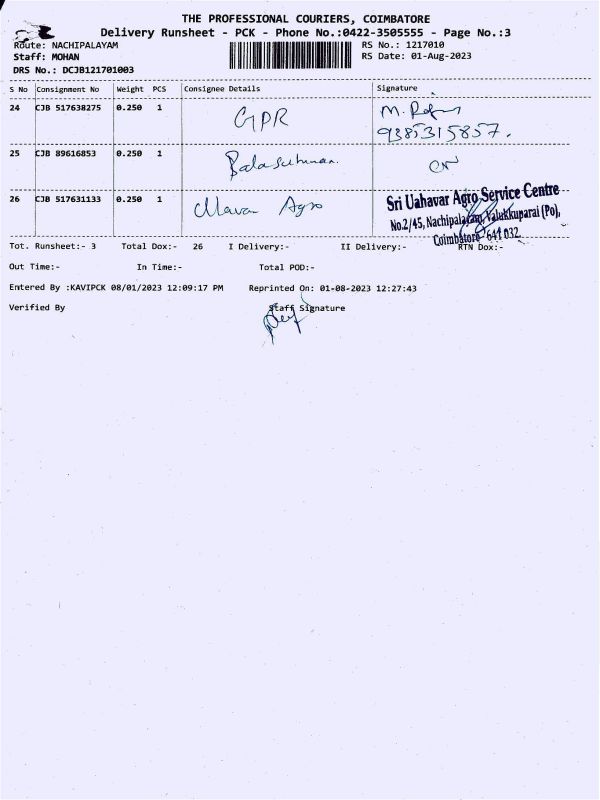 THE PROFESSIONAL COURIERS, COIMBATORE
Delivery Runsheet - PCK - Phone No.:0422-3505555 - Page No.:3
Route: NACHIPALAYAM
RS No.: 1217010
Staff: MOHAN
RS Date: 01-Aug-2023
DRS No.: DCJB121701003
S No Consignment No Weight PCS Consignee Details Signature
24 CJB 517638275 0.250 1 GPR
9385315857.
25 CJB 89616853 0.250 1
26 CJB 517631133 0.250 1 Agro
Sri Uahavar Agro Service Centre
No.2/45, Nachipalayam, Valukkuparai (Po),
Coimbatore 641 032
Tot. Runsheet:- 3 Total Dox:- 26 I Delivery:- II Delivery:- RTN Dox:-
Out Time:- In Time:- Total POD:-
Entered By :KAVIPCK 08/01/2023 12:09:17 PM Reprinted On: 01-08-2023 12:27:43
Verified By Staff Signature